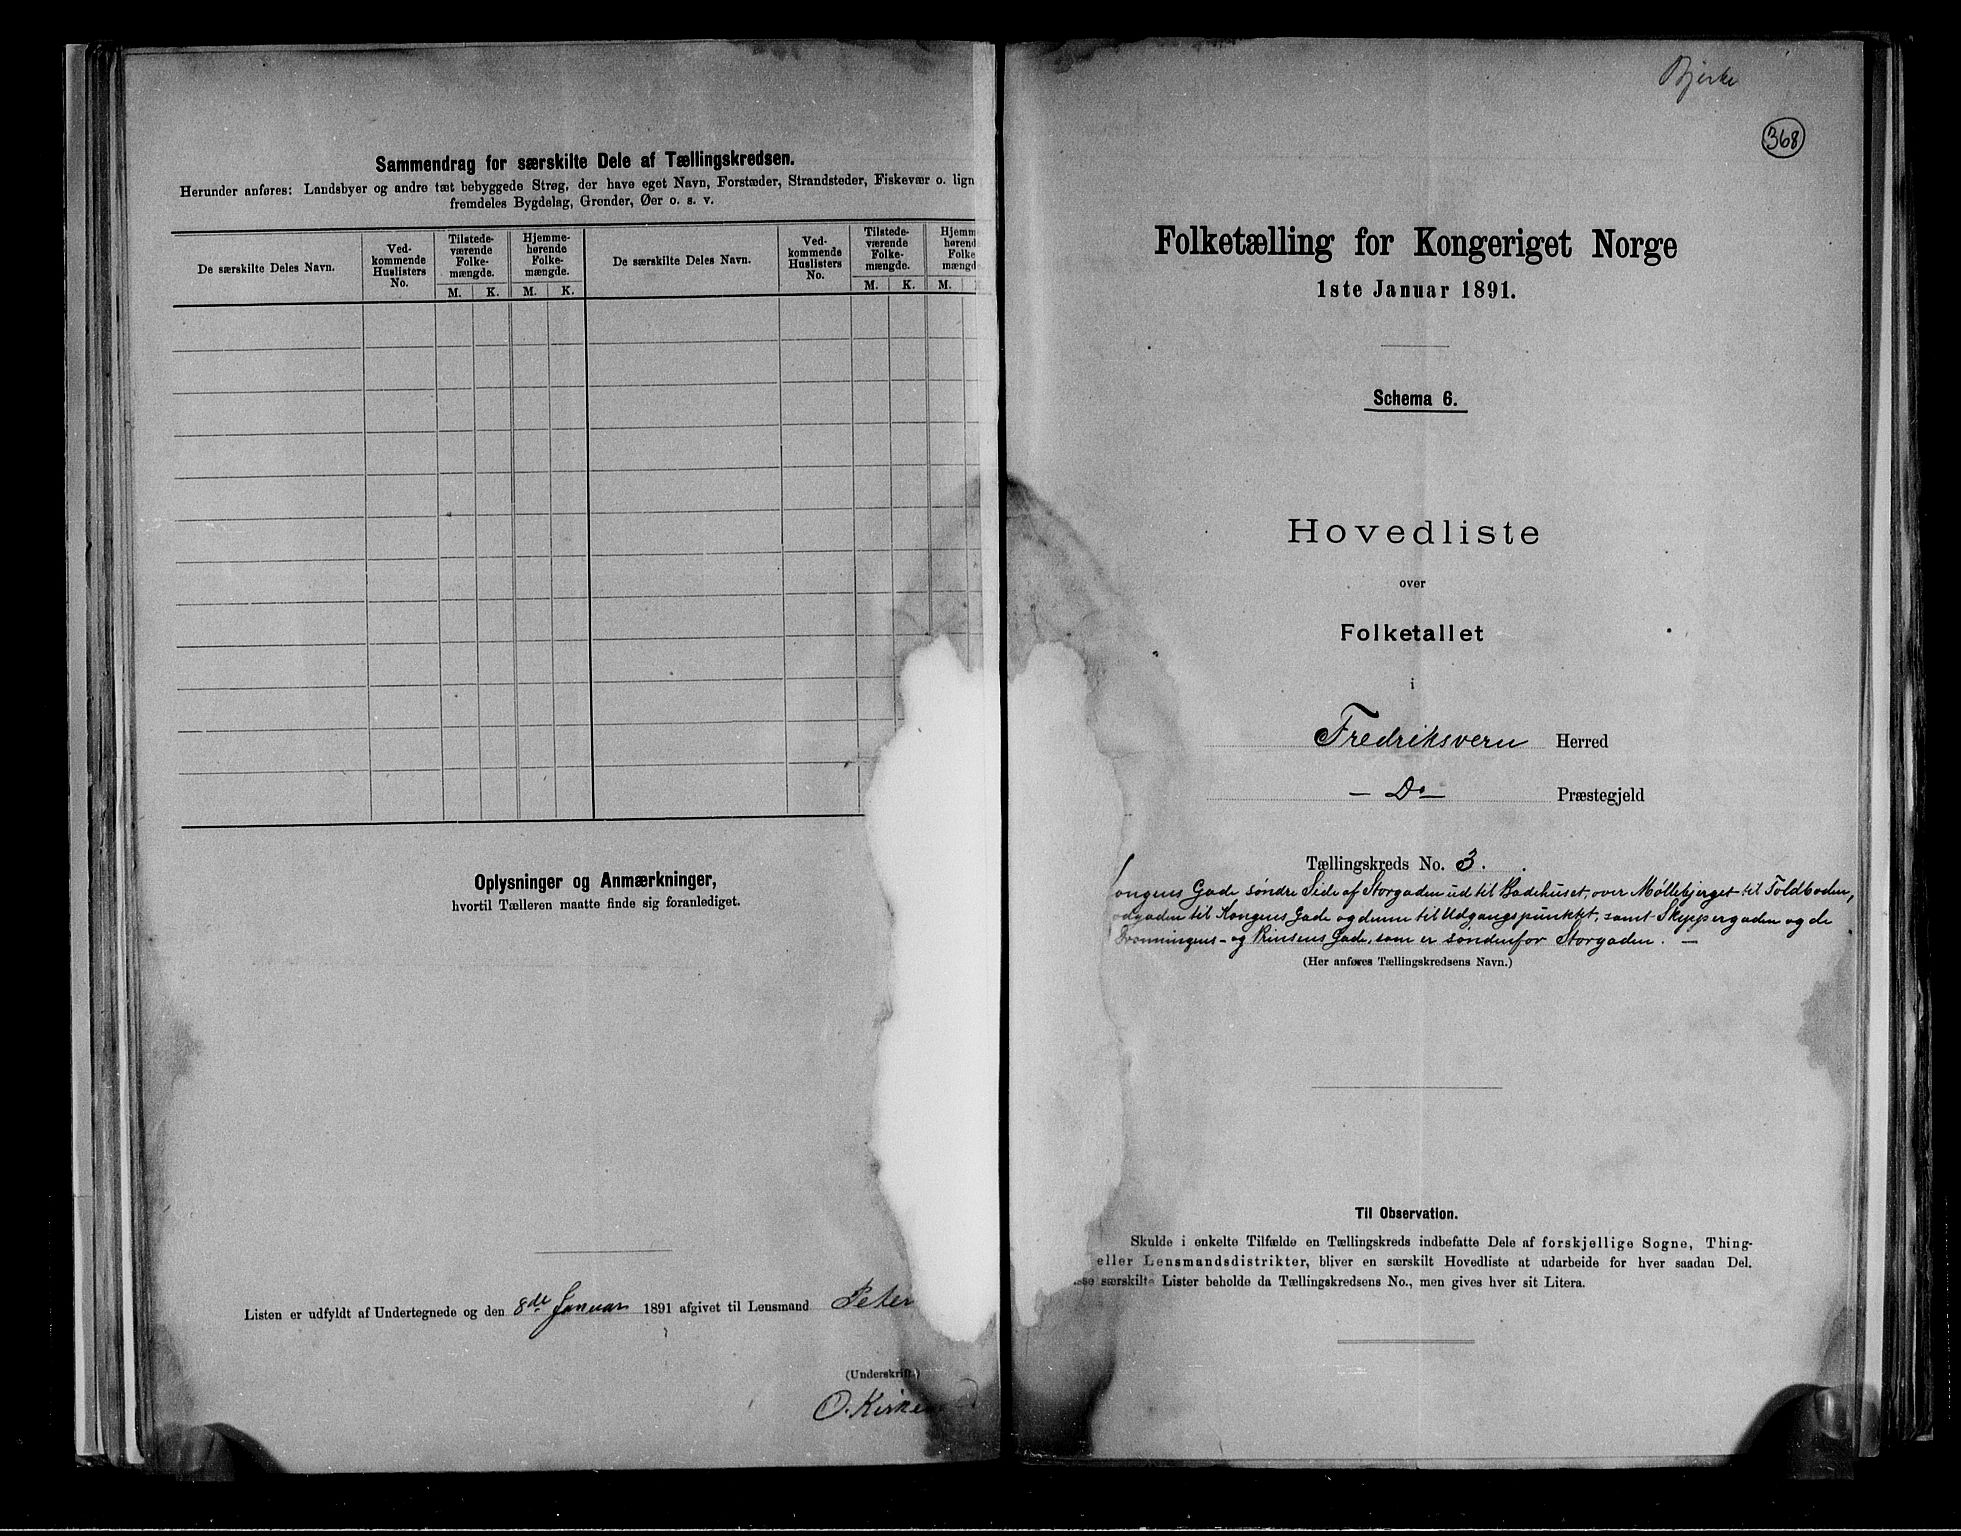 Sammendrag for særskilte Dele af Tællingskredsen.
Herunder anføres: Landsbyer og andre tæt bebyggede Strøg, der have eget Navn, Forstæder, Strandsteder, Fiskevær o. lign
fremdeles Bygdelag, Grender, Øer o. s. v.
De særskilte Deles Navn.
Ved-
kommende
Huslisters
No.
Tilstede-
værende
Folke-
mængde.
Hjemme-
hørende
Folke-
mængde.
De særskilte Deles Navn.
Ved-
kommende
Huslisters
No.
Tilstede-
værende
Folke-
mængde.
Hjemme
hørend
Folke
mængd
M. K. M. K. M. K. M.
Oplysninger og Anmærkninger,
hvortil Tælleren maatte finde sig foranlediget.
Listen er udfyldt af Undertegnede og den 8de Januar 1891 afgivet til Lensmand Peter
(Underskrift.)
O. Kirke
Bjerke
368
Folketælling for Kongeriget Norge
1ste Januar 1891.
Schema 6.
Hovedliste
over
Folketallet
i
Fredriksvern Herred
— Do — Præstegjeld
Tællingskreds No. 3.
ongens Gade søndre Side af Storgaden ud til Badehuset, over Møllebjerget til Toldboden,
odgaden til Kongens Gade og denne til Udgangspunktet, samt Skippergaden og de
Dronningens- og Prinsens Gade, som er søndenfor Storgaden. —
(Her anføres Tællingskredsens Navn.)
Til Observation.
Skulde i enkelte Tilfælde en Tællingskreds indbefatte Dele af forskjellige Sogne, Thing-
eller Lensmandsdistrikter, bliver en særskilt Hovedliste at udarbeide for hver saadan Del.
sse særskilte Lister beholde da Tællingskredsens No., men gives hver sit Litera.